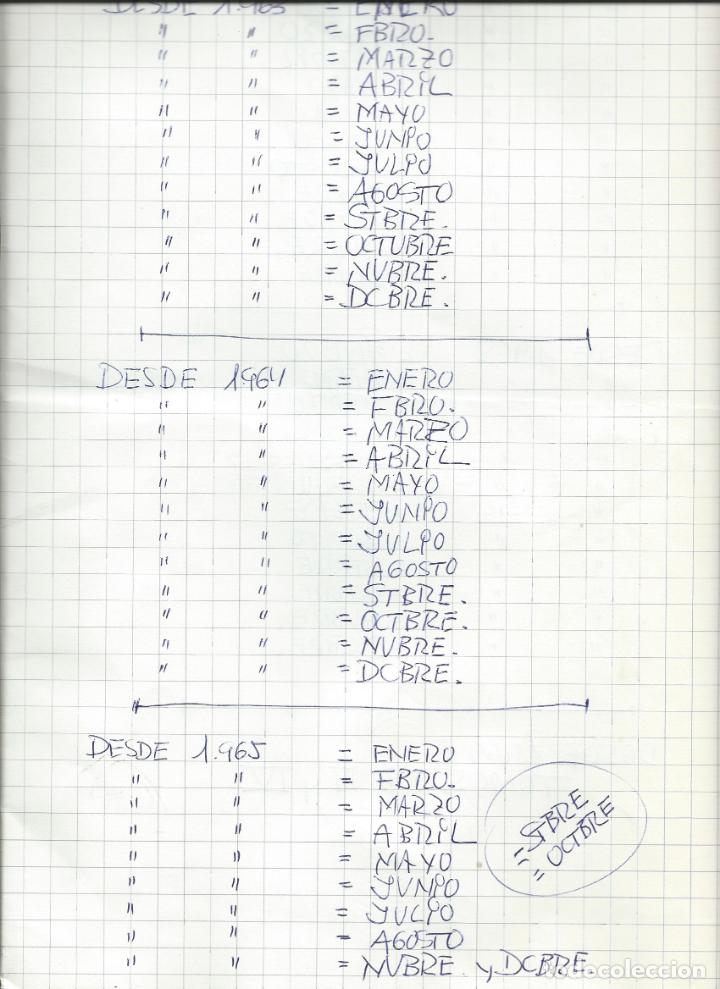 DESDE 1.963 = ENERO
" " = FBRO.
" " = MARZO
" " = ABRIL
" " = MAYO
" " = JUNIO
" " = JULIO
" " = AGOSTO
" " = STBRE.
" " = OCTUBRE
" " = NVBRE.
" " = DCBRE.
DESDE 1964 = ENERO
" " = FBRO.
" " = MARZO
" " = ABRIL
" " = MAYO
" " = JUNIO
" " = JULIO
" " = AGOSTO
" " = STBRE.
" " = OCTBRE.
" " = NVBRE.
" " = DCBRE.
DESDE 1.965 = ENERO
" " = FBRO.
" " = MARZO
" " = ABRIL
" " = MAYO
" " = JUNIO
" " = JULIO
" " = AGOSTO
" " = NVBRE y DCBRE
= STBRE
= OCTBRE
todocoleccion